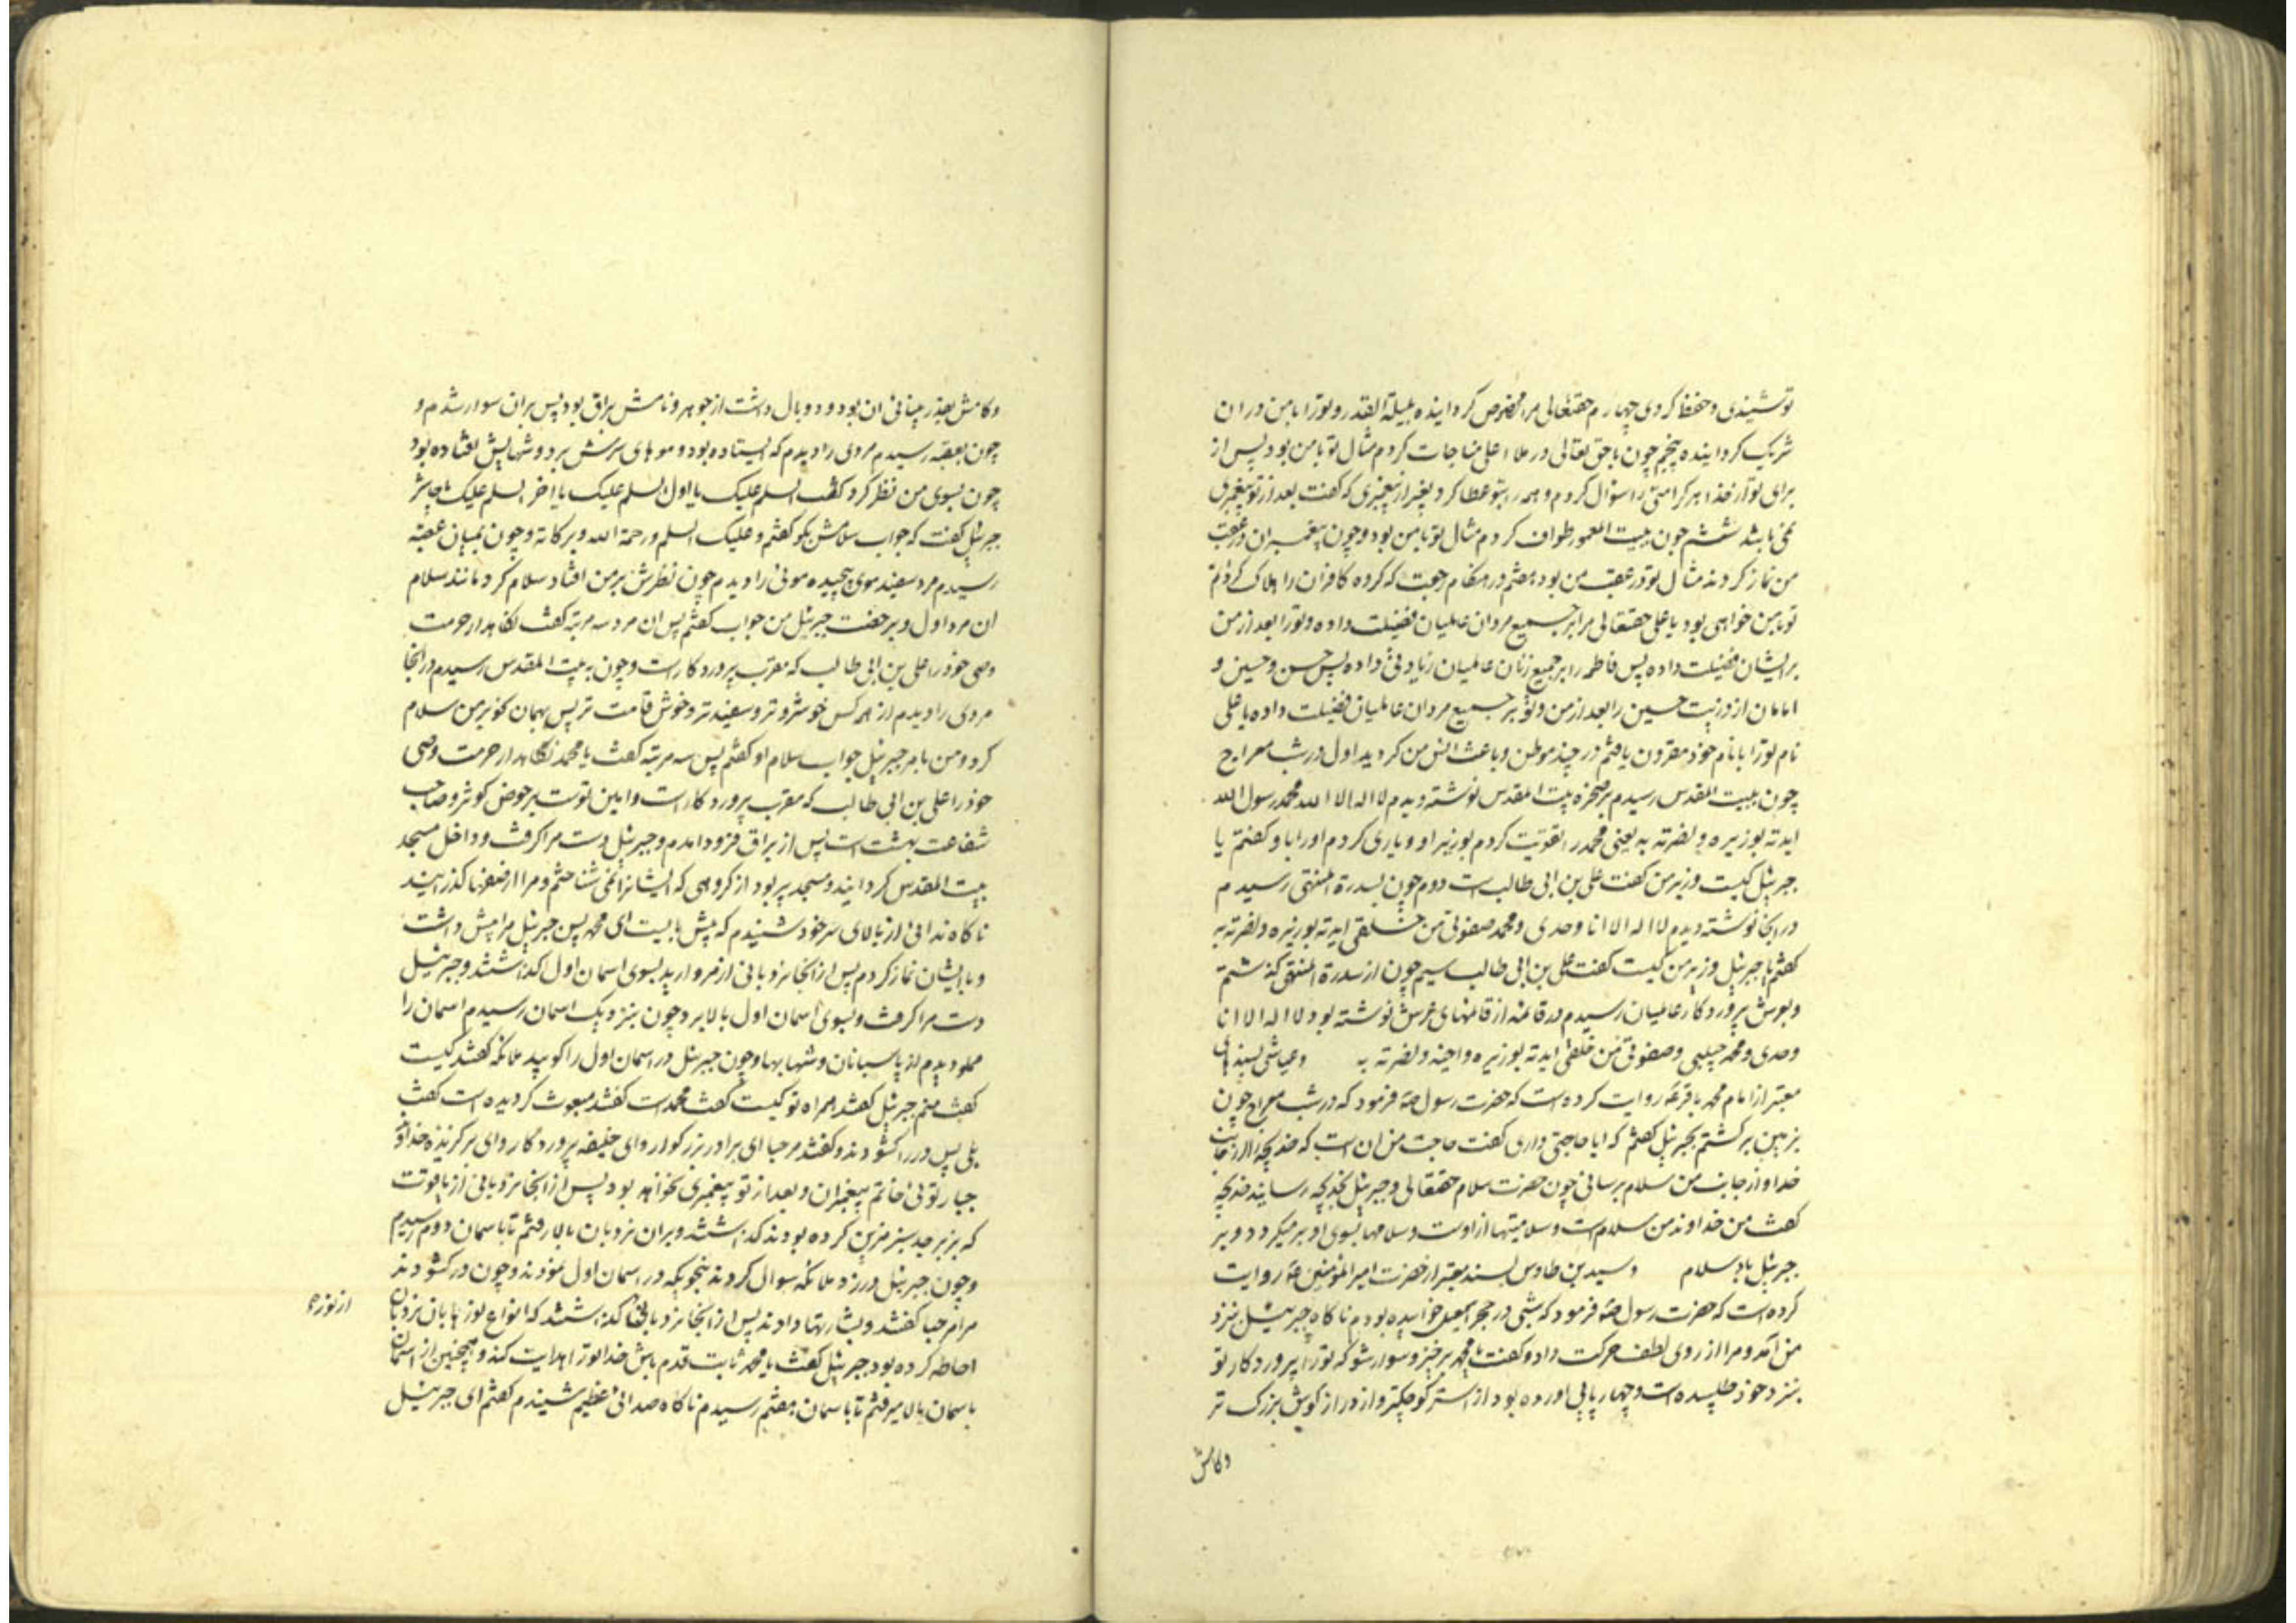 تو شنیدی و حفظ کردی چهارم حقتعالی مرا مخصوص گردانیده بلیلة القدر و تو را با من در ان
شریک گردانیده پنجم چون با حق تعالی در ملاء اعلی مناجات کردم مثال تو با من بود پس از
برای تو از خدا هر کرامتی را سؤال کردم و همه را بتو عطا کرد بغیر از پیغمبری که گفت بعد از تو پیغمبری
نمی باشد ششم چون ببیت المعمور طواف کردم مثال تو با من بود و چون پیغمبران در عقب
من نماز کردند مثال تو در عقب من بود هفتم در هنکام رجعت که کرده کافران را هلاک
تو با من خواهی بود یا علی حقتعالی مرا بر جمیع مردان عالمیان فضیلت داده و تو را بعد از من
بر ایشان فضیلت داده پس فاطمه را بر جمیع زنان عالمیان زیادتی داده پس حسن و حسین و
امامان از ذریت حسین را بعد از من و تو بر جمیع مردان عالمیان فضیلت داده یا علی
نام تو را با نام خود مقرون یافتم در چند موطن و باعث انس من کردید اول در شب معراج
چون ببیت المقدس رسیدم بر صخره بیت المقدس نوشته دیدم لا اله الا الله محمد رسول الله
ایدته بوزیره و نصرته به یعنی محمد را تقویت کردم بوزیر او و یاری کردم او را با و گفتم یا
جبرئیل کیست وزیر من گفت علی بن ابی طالب است دوم چون بسدرة المنتهی رسیدم
در انجا نوشته دیدم لا اله الا انا وحدی و محمد صفوتی من خلقی ایدته بوزیره و نصرته به
گفتم یا جبرئیل وزیر من کیست گفت علی بن ابی طالب سیم چون از سدرة المنتهی گذشتم
و بعرش پروردکار عالمیان رسیدم در قائمه از قائمهای عرش نوشته بود لا اله الا انا
وحدی و محمد حبیبی و صفوتی من خلقی ایدته بوزیره و اخیه و نصرته به و عیاشی بسندهای
معتبر از امام محمد باقر ع روایت کرده است که حضرت رسول ص فرمود که در شب معراج چون
بزمین برگشتم بجبرئیل گفتم که ایا حاجتی داری گفت حاجت من ان است که خدیجه را از جانب
خدا و از جانب من سلام برسانی چون حضرت سلام حقتعالی و جبرئیل بخدیجه رسانید خدیجه
گفت من خداوند من سلام است و سلامیتها از اوست و سلامها بسوی او بر میگردد و بر
جبرئیل باد سلام و سید بن طاوس بسند معتبر از حضرت امیر المؤمنین ع روایت
کرده است که حضرت رسول ص فرمود که شبی در حجر اسمعیل خوابیده بودم ناکاه جبرئیل بنزد
من آمد و مرا از روی لطف حرکت داد و گفت یا محمد برخیز و سوار شو که تو را پروردکار تو
بنزد خود طلبیده است و چهارپایی اورده بود از استر کوچکتر و از دراز گوش بزرگ تر
وکامش
وکامش بقدر بینائی ان بود و دو بال داشت از جوهر و نامش براق بود پس بران سوار شدم و
چون بعقبه رسیدم مردی را دیدم که ایستاده بود و موهای سرش بر دوشهایش افتاده بود
چون بسوی من نظر کرد گفت السلم علیک یا اول السلم علیک یا اخر السلم علیک یا حاشر
جبرئیل گفت که جواب سلامش بگو گفتم و علیک السلم و رحمة الله و برکاته و چون بمیان عقبه
رسیدم مرد سفید موی پیچیده موئی را دیدم چون نظرش بر من افتاد سلام کرد مانند سلام
ان مرد اول و بر جبرئیل من جواب گفتم پس ان مرد سه مرتبه گفت نکاهدار حرمت
وصی خود را علی بن ابی طالب که مقرب پروردکار است و چون به بیت المقدس رسیدم در انجا
مردی را دیدم از همه کس خوشرو تر و سفید تر و خوش قامت تر پس بهمان نحو بر من سلام
کرد و من بامر جبرئیل جواب سلام او گفتم پس سه مرتبه گفت یا محمد نکاهدار حرمت وصی
خود را علی بن ابی طالب که مقرب پروردکار است و امین تو است بر حوض کوثر و صاحب
شفاعت بهشت است پس از براق فرود امدم و جبرئیل دست مرا گرفت و داخل مسجد
بیت المقدس کردانید و مسجد پر بود از گروهی که ایشانرا نمی شناختم و مرا از صفها گذرانید
ناکاه ندائی از بالای سر خود شنیدم که پیش بایست ای محمد پس جبرئیل مرا پیش داشت
و با ایشان نماز کردم پس از انجا نردبانی از مروارید بسوی اسمان اول گذاشتند و جبرئیل
دست مرا گرفت و بسوی آسمان اول بالا برد چون بنزدیک اسمان رسیدم اسمان را
مملو دیدم از پاسبانان و شهابها و چون جبرئیل در اسمان اول را کوبید ملائکه گفتند کیست
گفت منم جبرئیل گفتند همراه تو کیست گفت محمد است گفتند مبعوث گردیده است گفت
بلی پس در را گشودند و گفتند مرحبا ای برادر بزرگوار و ای خلیفه پروردگار و ای برگزیده خداوند
جبار توئی خاتم پیغمبران و بعد از تو پیغمبری نخواهد بود پس از انجا نردبانی از یاقوت
که بزبرجد سبز مزین کرده بودند گذاشتند و بران نردبان بالا رفتم تا باسمان دوم رسیدم
و چون جبرئیل در زد ملائکه سوال کردند بنحویکه در اسمان اول نمودند و چون در گشودند
مرا مرحبا گفتند و بشارتها دادند پس از انجا نردبانی گذاشتند که انواع نورها بان نردبان
از نور
احاطه کرده بود جبرئیل گفت یا محمد ثابت قدم باش خدا تو را هدایت کند و همچنین از اسمان
باسمان بالا میرفتم تا باسمان هفتم رسیدم ناکاه صدائی عظیم شنیدم گفتم ای جبرئیل